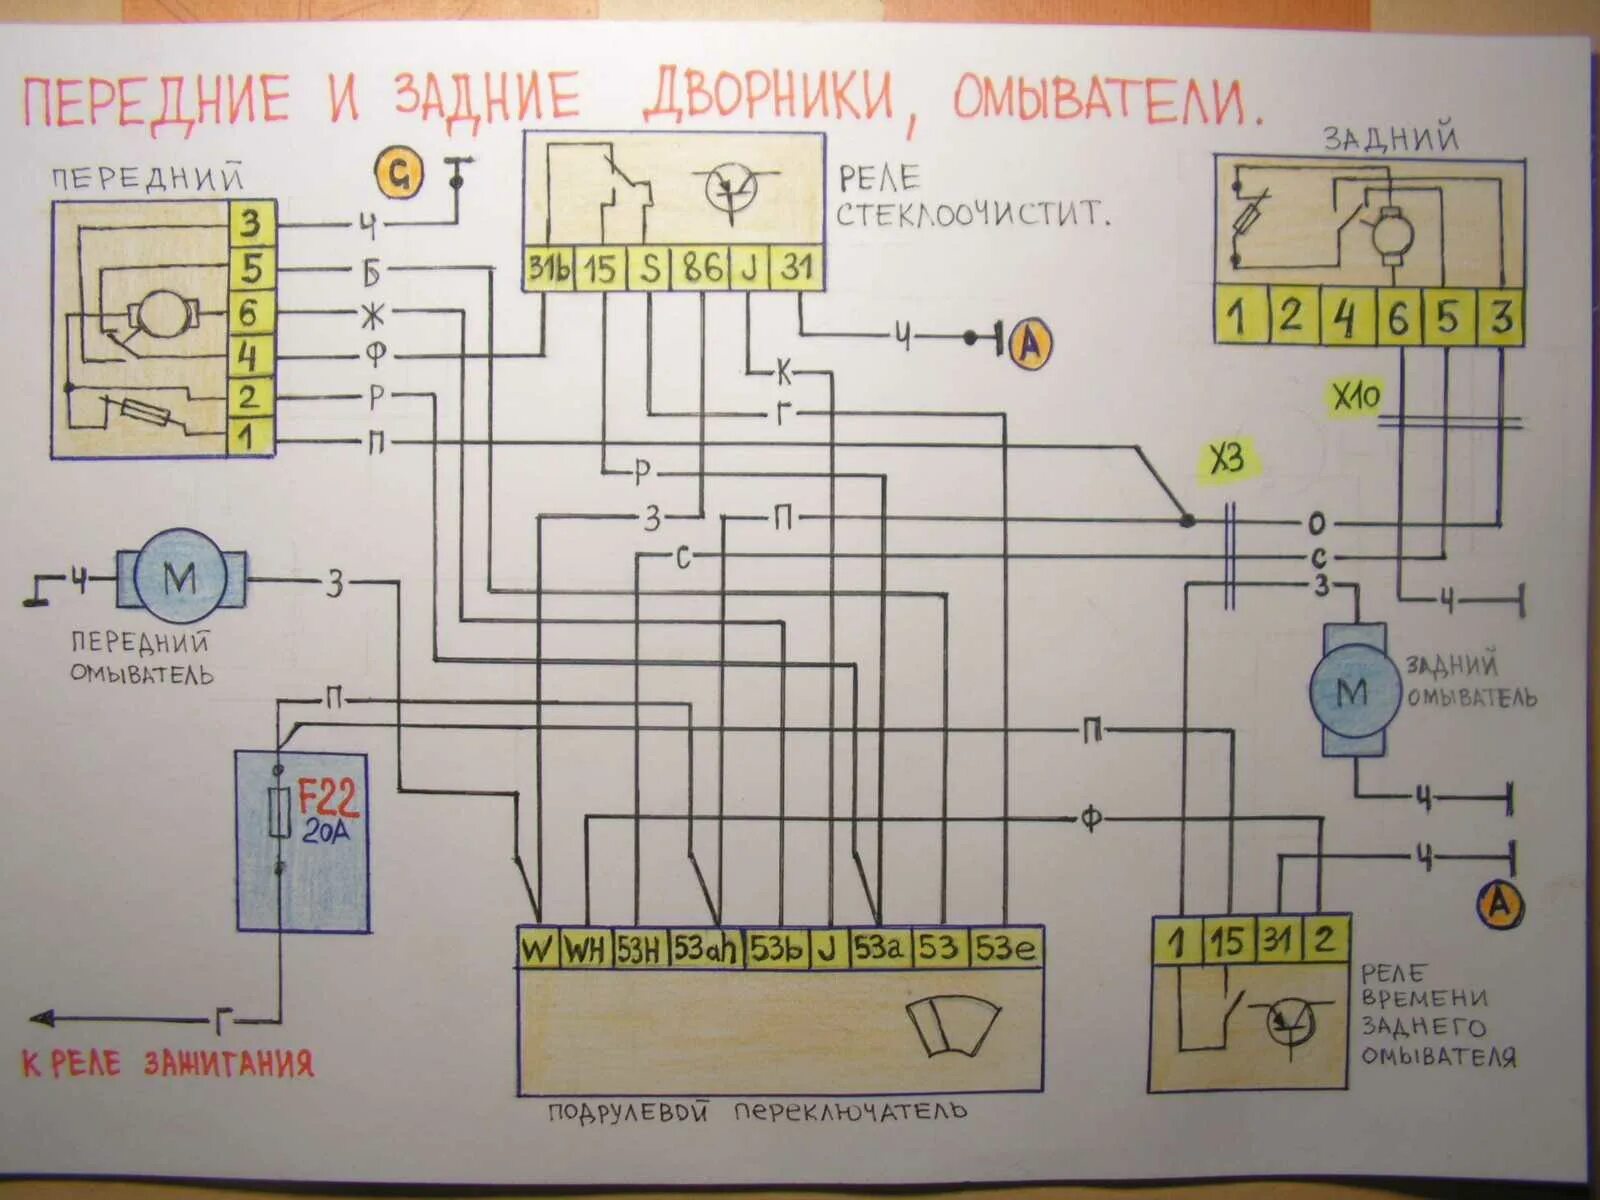 ПЕРЕДНИЕ И ЗАДНИЕ ДВОРНИКИ, ОМЫВАТЕЛИ.
ПЕРЕДНИЙ
G
3
5
6
4
2
1
Ч
Б
Ж
Ф
Р
П
РЕЛЕ
СТЕКЛООЧИСТИТ.
31b 15 S 86 J 31
Ч
А
К
Г
Р
З
П
С
ЗАДНИЙ
1 2 4 6 5 3
X10
X3
О
С
З
Ч
Ч М З
ПЕРЕДНИЙ
ОМЫВАТЕЛЬ
М
ЗАДНИЙ
ОМЫВАТЕЛЬ
Ч
П
П
Ф
Ч
А
F22
20А
Г
К РЕЛЕ ЗАЖИГАНИЯ
W WH 53H 53ah 53b J 53a 53 53e
ПОДРУЛЕВОЙ ПЕРЕКЛЮЧАТЕЛЬ
1 15 31 2
РЕЛЕ
ВРЕМЕНИ
ЗАДНЕГО
ОМЫВАТЕЛЯ